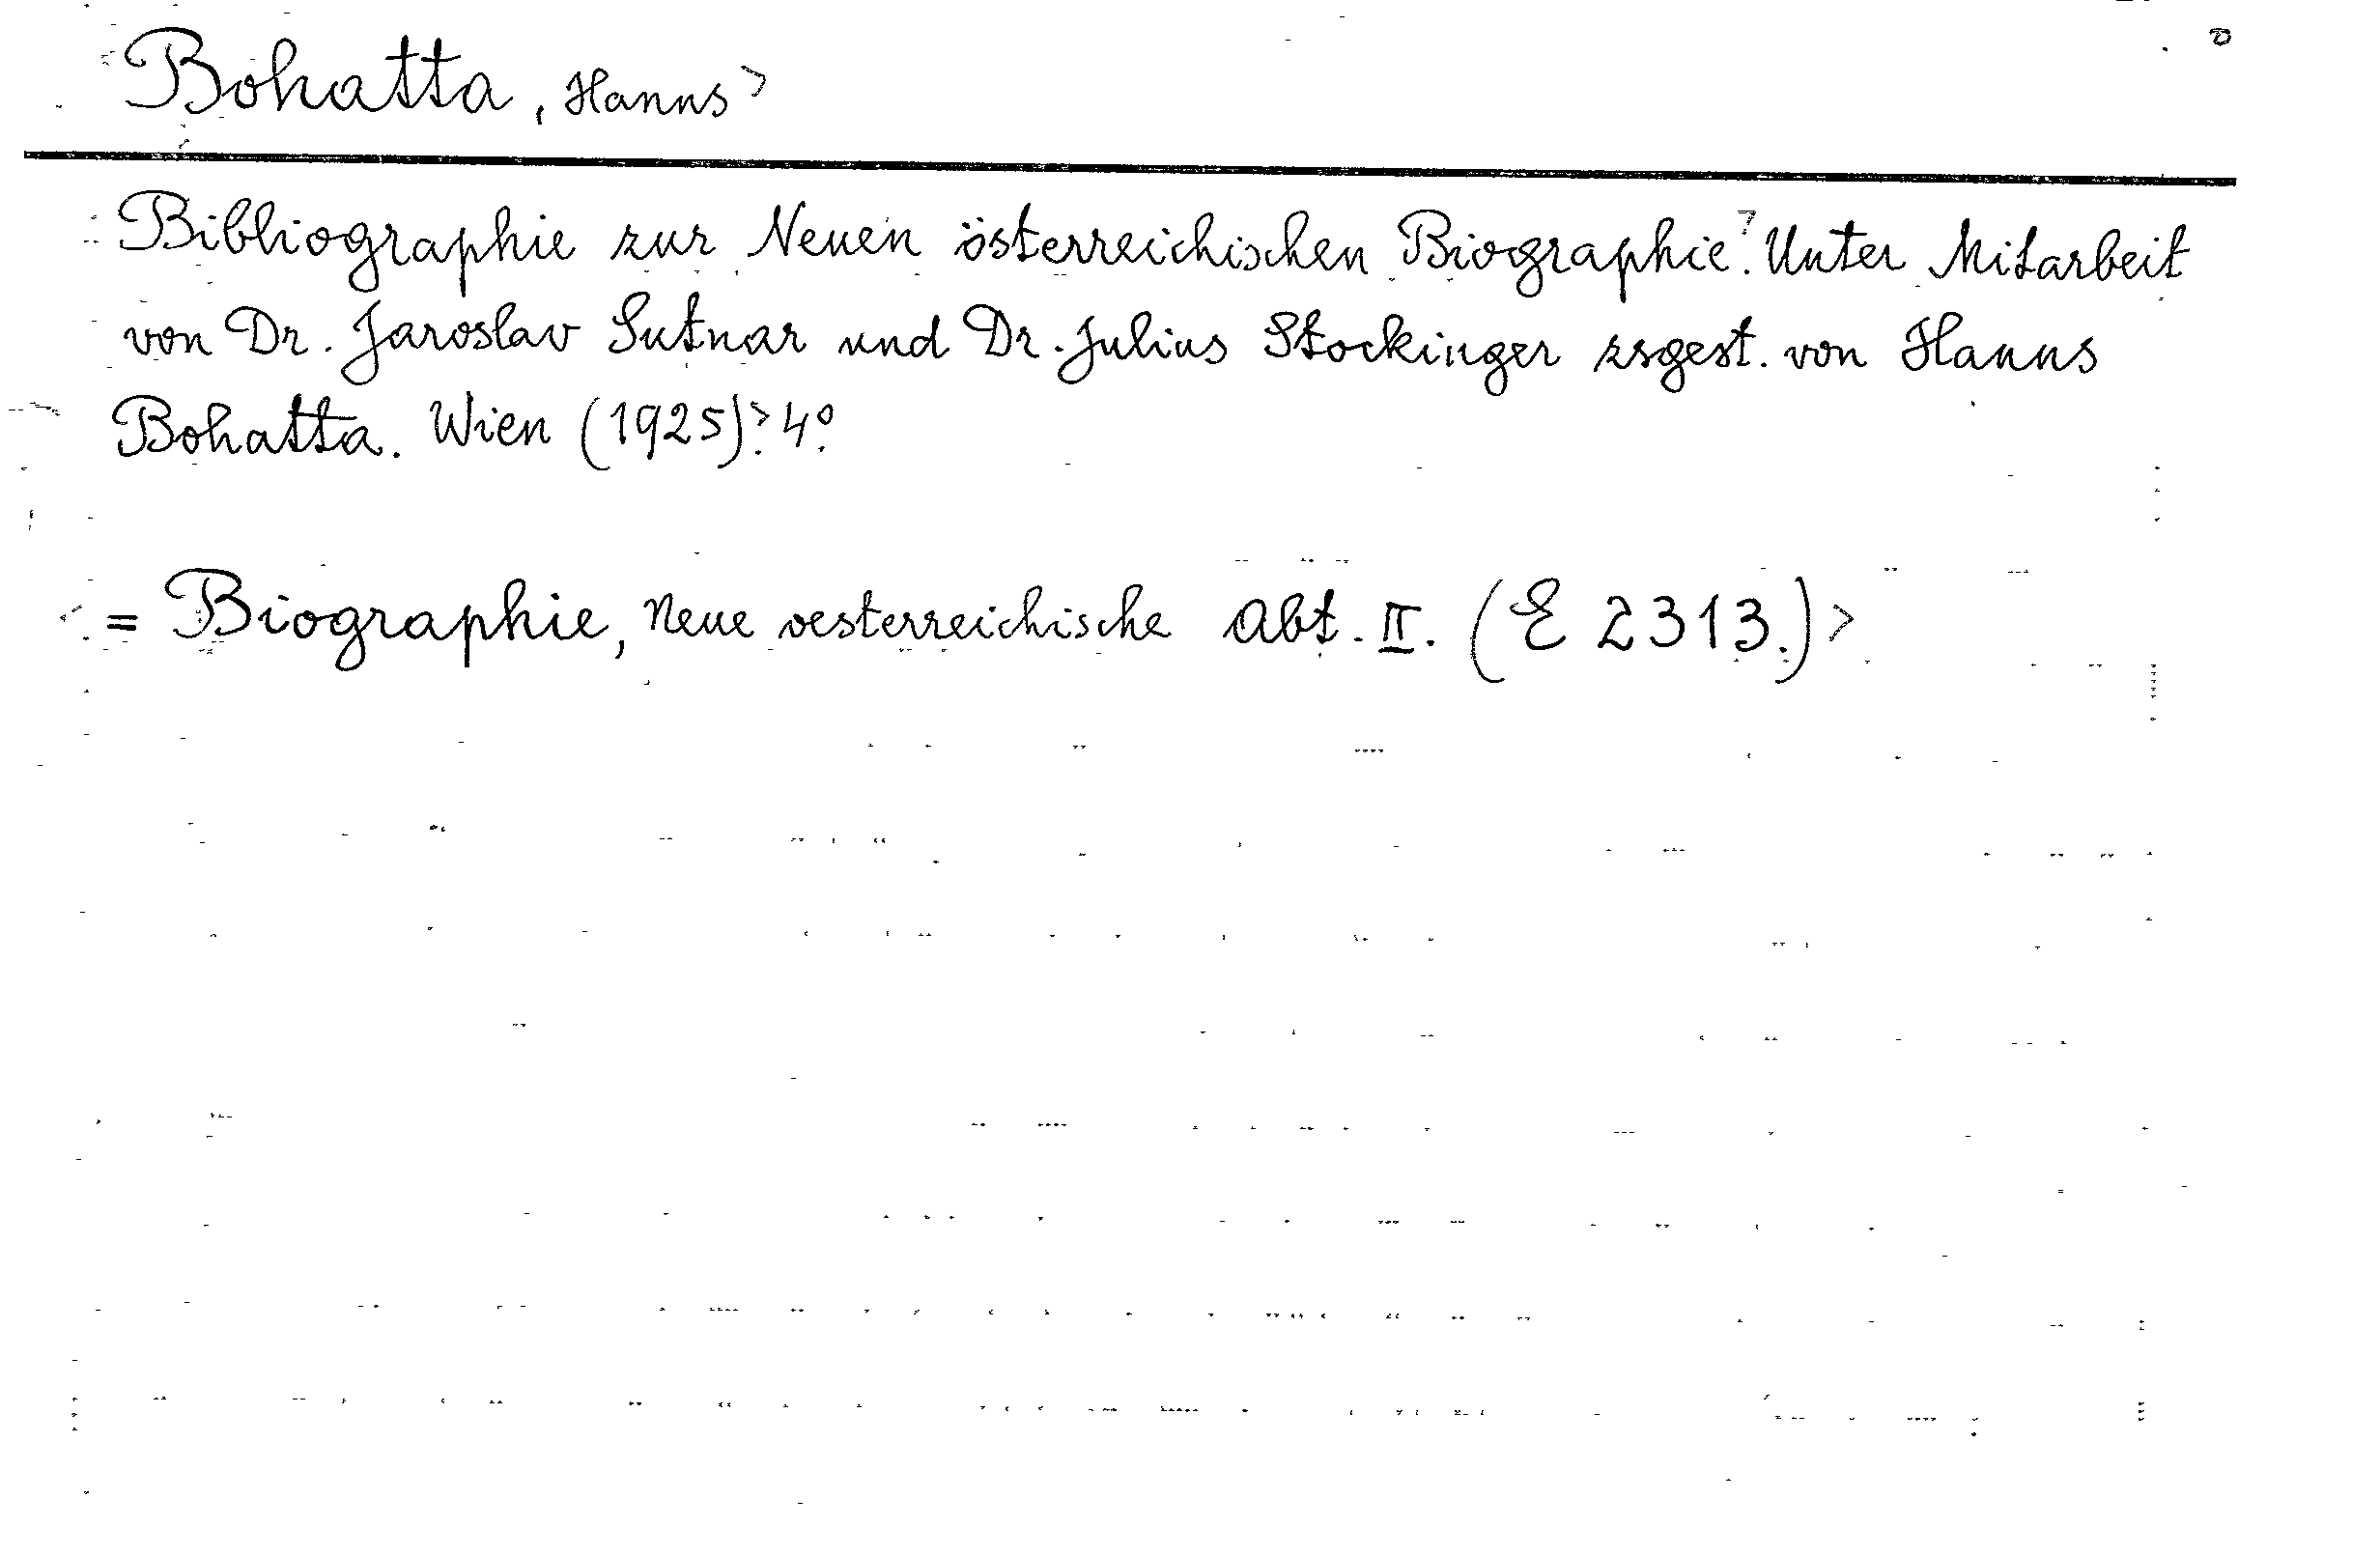 Bohatta, Hanns>
Bibliographie zur Neuen österreichischen Biographie⁷. Unter Mitarbeit
von Dr. Jaroslav Sutnar und Dr. Julius Stockinger zsgest. von Hanns
Bohatta. Wien (1925)>. 4°.
<= Biographie, Neue oesterreichische Abt. II. (E 2313.)>